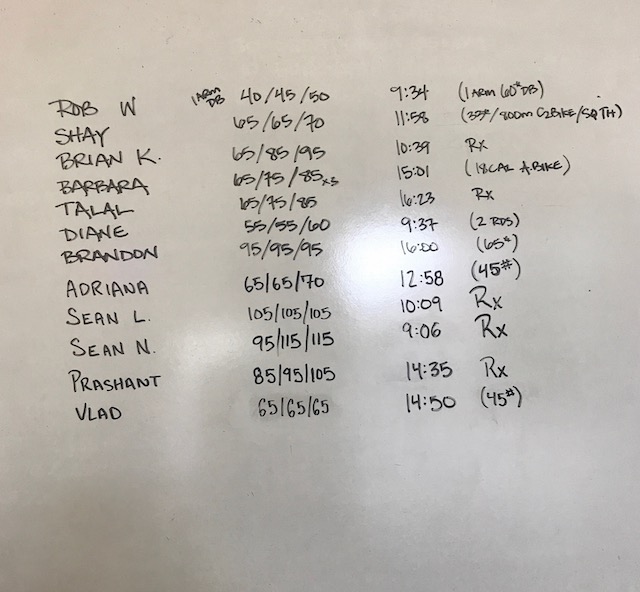 ROB W 1 ARM DB 40/45/50 9:34 (1 ARM 60# DB)
SHAY 65/65/70 11:58 (35#/800m C2BIKE/SQ TH)
BRIAN K. 65/85/95 10:39 Rx
BARBARA 65/75/85x3 15:01 (18CAL A.BIKE)
TALAL 65/75/85 16:23 Rx
DIANE 55/55/60 9:37 (2 RDS)
BRANDON 95/95/95 16:00 (65#)
ADRIANA 65/65/70 12:58 (45#)
SEAN L. 105/105/105 10:09 Rx
SEAN N. 95/115/115 9:06 Rx
PRASHANT 85/95/105 14:35 Rx
VLAD 65/65/65 14:50 (45#)